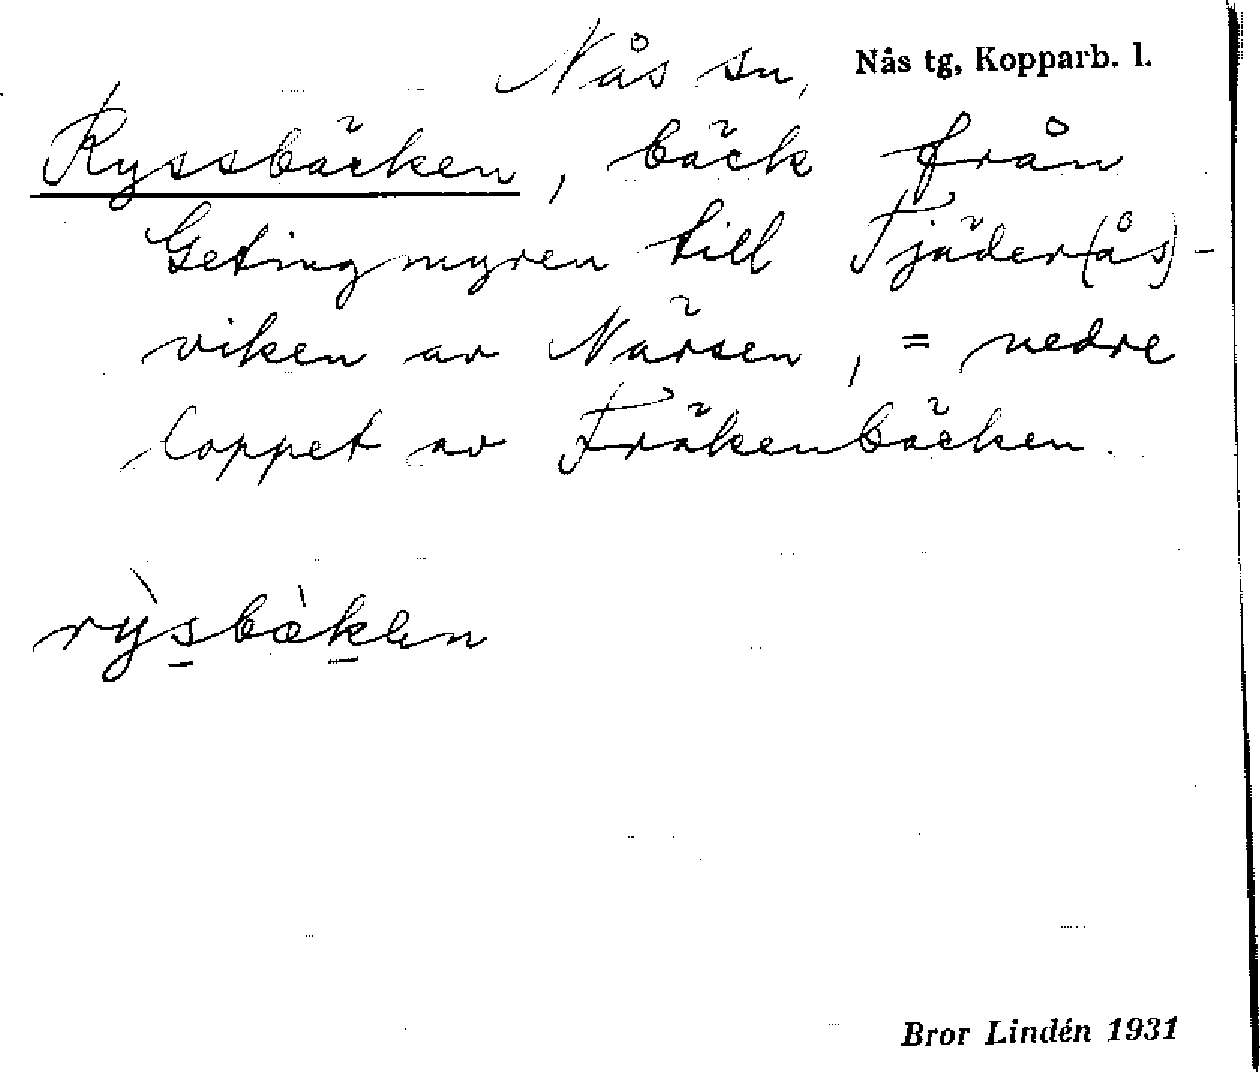 Nås sn, Nås tg, Kopparb. l.
Ryssbäcken, bäck från
Getingmyren till Fjäder(ås)-
viken av Närsen, = nedre
loppet av Fräkenbäcken.
Bror Lindén 1931